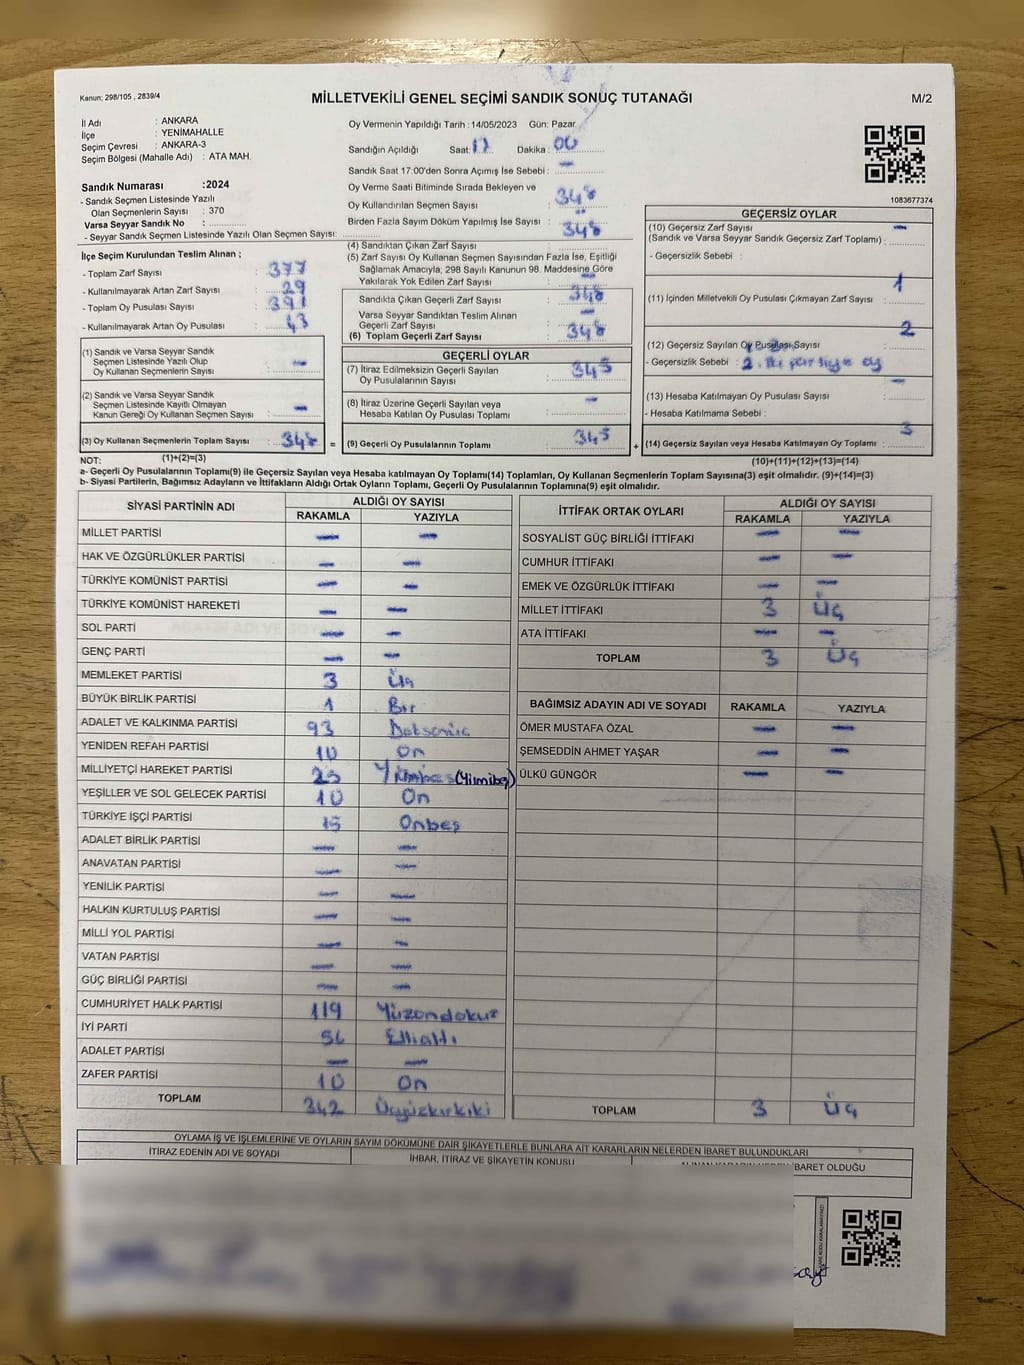 Kanun; 298/105 , 2839/4
MİLLETVEKİLİ GENEL SEÇİMİ SANDIK SONUÇ TUTANAĞI
M/2
İl Adı : ANKARA
İlçe : YENİMAHALLE
Seçim Çevresi : ANKARA-3
Seçim Bölgesi (Mahalle Adı) : ATA MAH.
Sandık Numarası :2024
- Sandık Seçmen Listesinde Yazılı
Olan Seçmenlerin Sayısı : 370
Varsa Seyyar Sandık No :
- Seyyar Sandık Seçmen Listesinde Yazılı Olan Seçmen Sayısı:
Oy Vermenin Yapıldığı Tarih :14/05/2023 Gün: Pazar
Sandığın Açıldığı Saat: 17 Dakika : 00
Sandık Saat 17:00'den Sonra Açımış İse Sebebi : —
Oy Verme Saati Bitiminde Sırada Bekleyen ve
Oy Kullandırılan Seçmen Sayısı : 348
Birden Fazla Sayım Döküm Yapılmış İse Sayısı : 348
1083677374
İlçe Seçim Kurulundan Teslim Alınan ;
- Toplam Zarf Sayısı : 377
- Kullanılmayarak Artan Zarf Sayısı : 29
- Toplam Oy Pusulası Sayısı : 391
- Kullanılmayarak Artan Oy Pusulası : 43
(1) Sandık ve Varsa Seyyar Sandık
Seçmen Listesinde Yazılı Olup
Oy Kullanan Seçmenlerin Sayısı : —
(2) Sandık ve Varsa Seyyar Sandık
Seçmen Listesinde Kayıtlı Olmayan
Kanun Gereği Oy Kullanan Seçmen Sayısı : —
(3) Oy Kullanan Seçmenlerin Toplam Sayısı : 348
(4) Sandıktan Çıkan Zarf Sayısı :
(5) Zarf Sayısı Oy Kullanan Seçmen Sayısından Fazla İse, Eşitliği
Sağlamak Amacıyla; 298 Sayılı Kanunun 98. Maddesine Göre
Yakılarak Yok Edilen Zarf Sayısı : —
Sandıkta Çıkan Geçerli Zarf Sayısı : 348
Varsa Seyyar Sandıktan Teslim Alınan
Geçerli Zarf Sayısı : —
(6) Toplam Geçerli Zarf Sayısı : 348
GEÇERLİ OYLAR
(7) İtiraz Edilmeksizin Geçerli Sayılan
Oy Pusulalarının Sayısı : 345
(8) İtiraz Üzerine Geçerli Sayılan veya
Hesaba Katılan Oy Pusulası Toplamı : —
= (9) Geçerli Oy Pusulalarının Toplamı : 345
GEÇERSİZ OYLAR
(10) Geçersiz Zarf Sayısı —
(Sandık ve Varsa Seyyar Sandık Geçersiz Zarf Toplamı) :
- Geçersizlik Sebebi :
(11) İçinden Milletvekili Oy Pusulası Çıkmayan Zarf Sayısı : 1
(12) Geçersiz Sayılan Oy Pusulası Sayısı : 2
- Geçersizlik Sebebi :
(13) Hesaba Katılmayan Oy Pusulası Sayısı : —
- Hesaba Katılmama Sebebi :
+ (14) Geçersiz Sayılan veya Hesaba Katılmayan Oy Toplamı : 3
NOT: (1)+(2)=(3)
(10)+(11)+(12)+(13)=(14)
a- Geçerli Oy Pusulalarının Toplamı(9) ile Geçersiz Sayılan veya Hesaba katılmayan Oy Toplamı(14) Toplamları, Oy Kullanan Seçmenlerin Toplam Sayısına(3) eşit olmalıdır. (9)+(14)=(3)
b- Siyasi Partilerin, Bağımsız Adayların ve İttifakların Aldığı Ortak Oyların Toplamı, Geçerli Oy Pusulalarının Toplamına(9) eşit olmalıdır.
SİYASİ PARTİNİN ADI ALDIĞI OY SAYISI
RAKAMLA YAZIYLA
MİLLET PARTİSİ — —
HAK VE ÖZGÜRLÜKLER PARTİSİ — —
TÜRKİYE KOMÜNİST PARTİSİ — —
TÜRKİYE KOMÜNİST HAREKETİ — —
SOL PARTİ — —
GENÇ PARTİ — —
MEMLEKET PARTİSİ 3 Üç
BÜYÜK BİRLİK PARTİSİ 1 Bir
ADALET VE KALKINMA PARTİSİ 93 Doksanüç
YENİDEN REFAH PARTİSİ 10 On
MİLLİYETÇİ HAREKET PARTİSİ 25 Yirmibeş (Yirmibeş)
YEŞİLLER VE SOL GELECEK PARTİSİ 10 On
TÜRKİYE İŞÇİ PARTİSİ 15 Onbeş
ADALET BİRLİK PARTİSİ — —
ANAVATAN PARTİSİ — —
YENİLİK PARTİSİ — —
HALKIN KURTULUŞ PARTİSİ — —
MİLLİ YOL PARTİSİ — —
VATAN PARTİSİ — —
GÜÇ BİRLİĞİ PARTİSİ — —
CUMHURİYET HALK PARTİSİ 119 Yüzondokuz
İYİ PARTİ 56 Ellialtı
ADALET PARTİSİ — —
ZAFER PARTİSİ 10 On
TOPLAM 342 Üçyüzkırkiki
İTTİFAK ORTAK OYLARI ALDIĞI OY SAYISI
RAKAMLA YAZIYLA
SOSYALİST GÜÇ BİRLİĞİ İTTİFAKI — —
CUMHUR İTTİFAKI — —
EMEK VE ÖZGÜRLÜK İTTİFAKI — —
MİLLET İTTİFAKI 3 Üç
ATA İTTİFAKI — —
TOPLAM 3 Üç
BAĞIMSIZ ADAYIN ADI VE SOYADI RAKAMLA YAZIYLA
ÖMER MUSTAFA ÖZAL — —
ŞEMSEDDİN AHMET YAŞAR — —
ÜLKÜ GÜNGÖR — —
TOPLAM 3 Üç
OYLAMA İŞ VE İŞLEMLERİNE VE OYLARIN SAYIM DÖKÜMÜNE DAİR ŞİKAYETLERLE BUNLARA AİT KARARLARIN NELERDEN İBARET BULUNDUKLARI
İTİRAZ EDENİN ADI VE SOYADI İHBAR, İTİRAZ VE ŞİKAYETİN KONUSU İBARET OLDUĞU